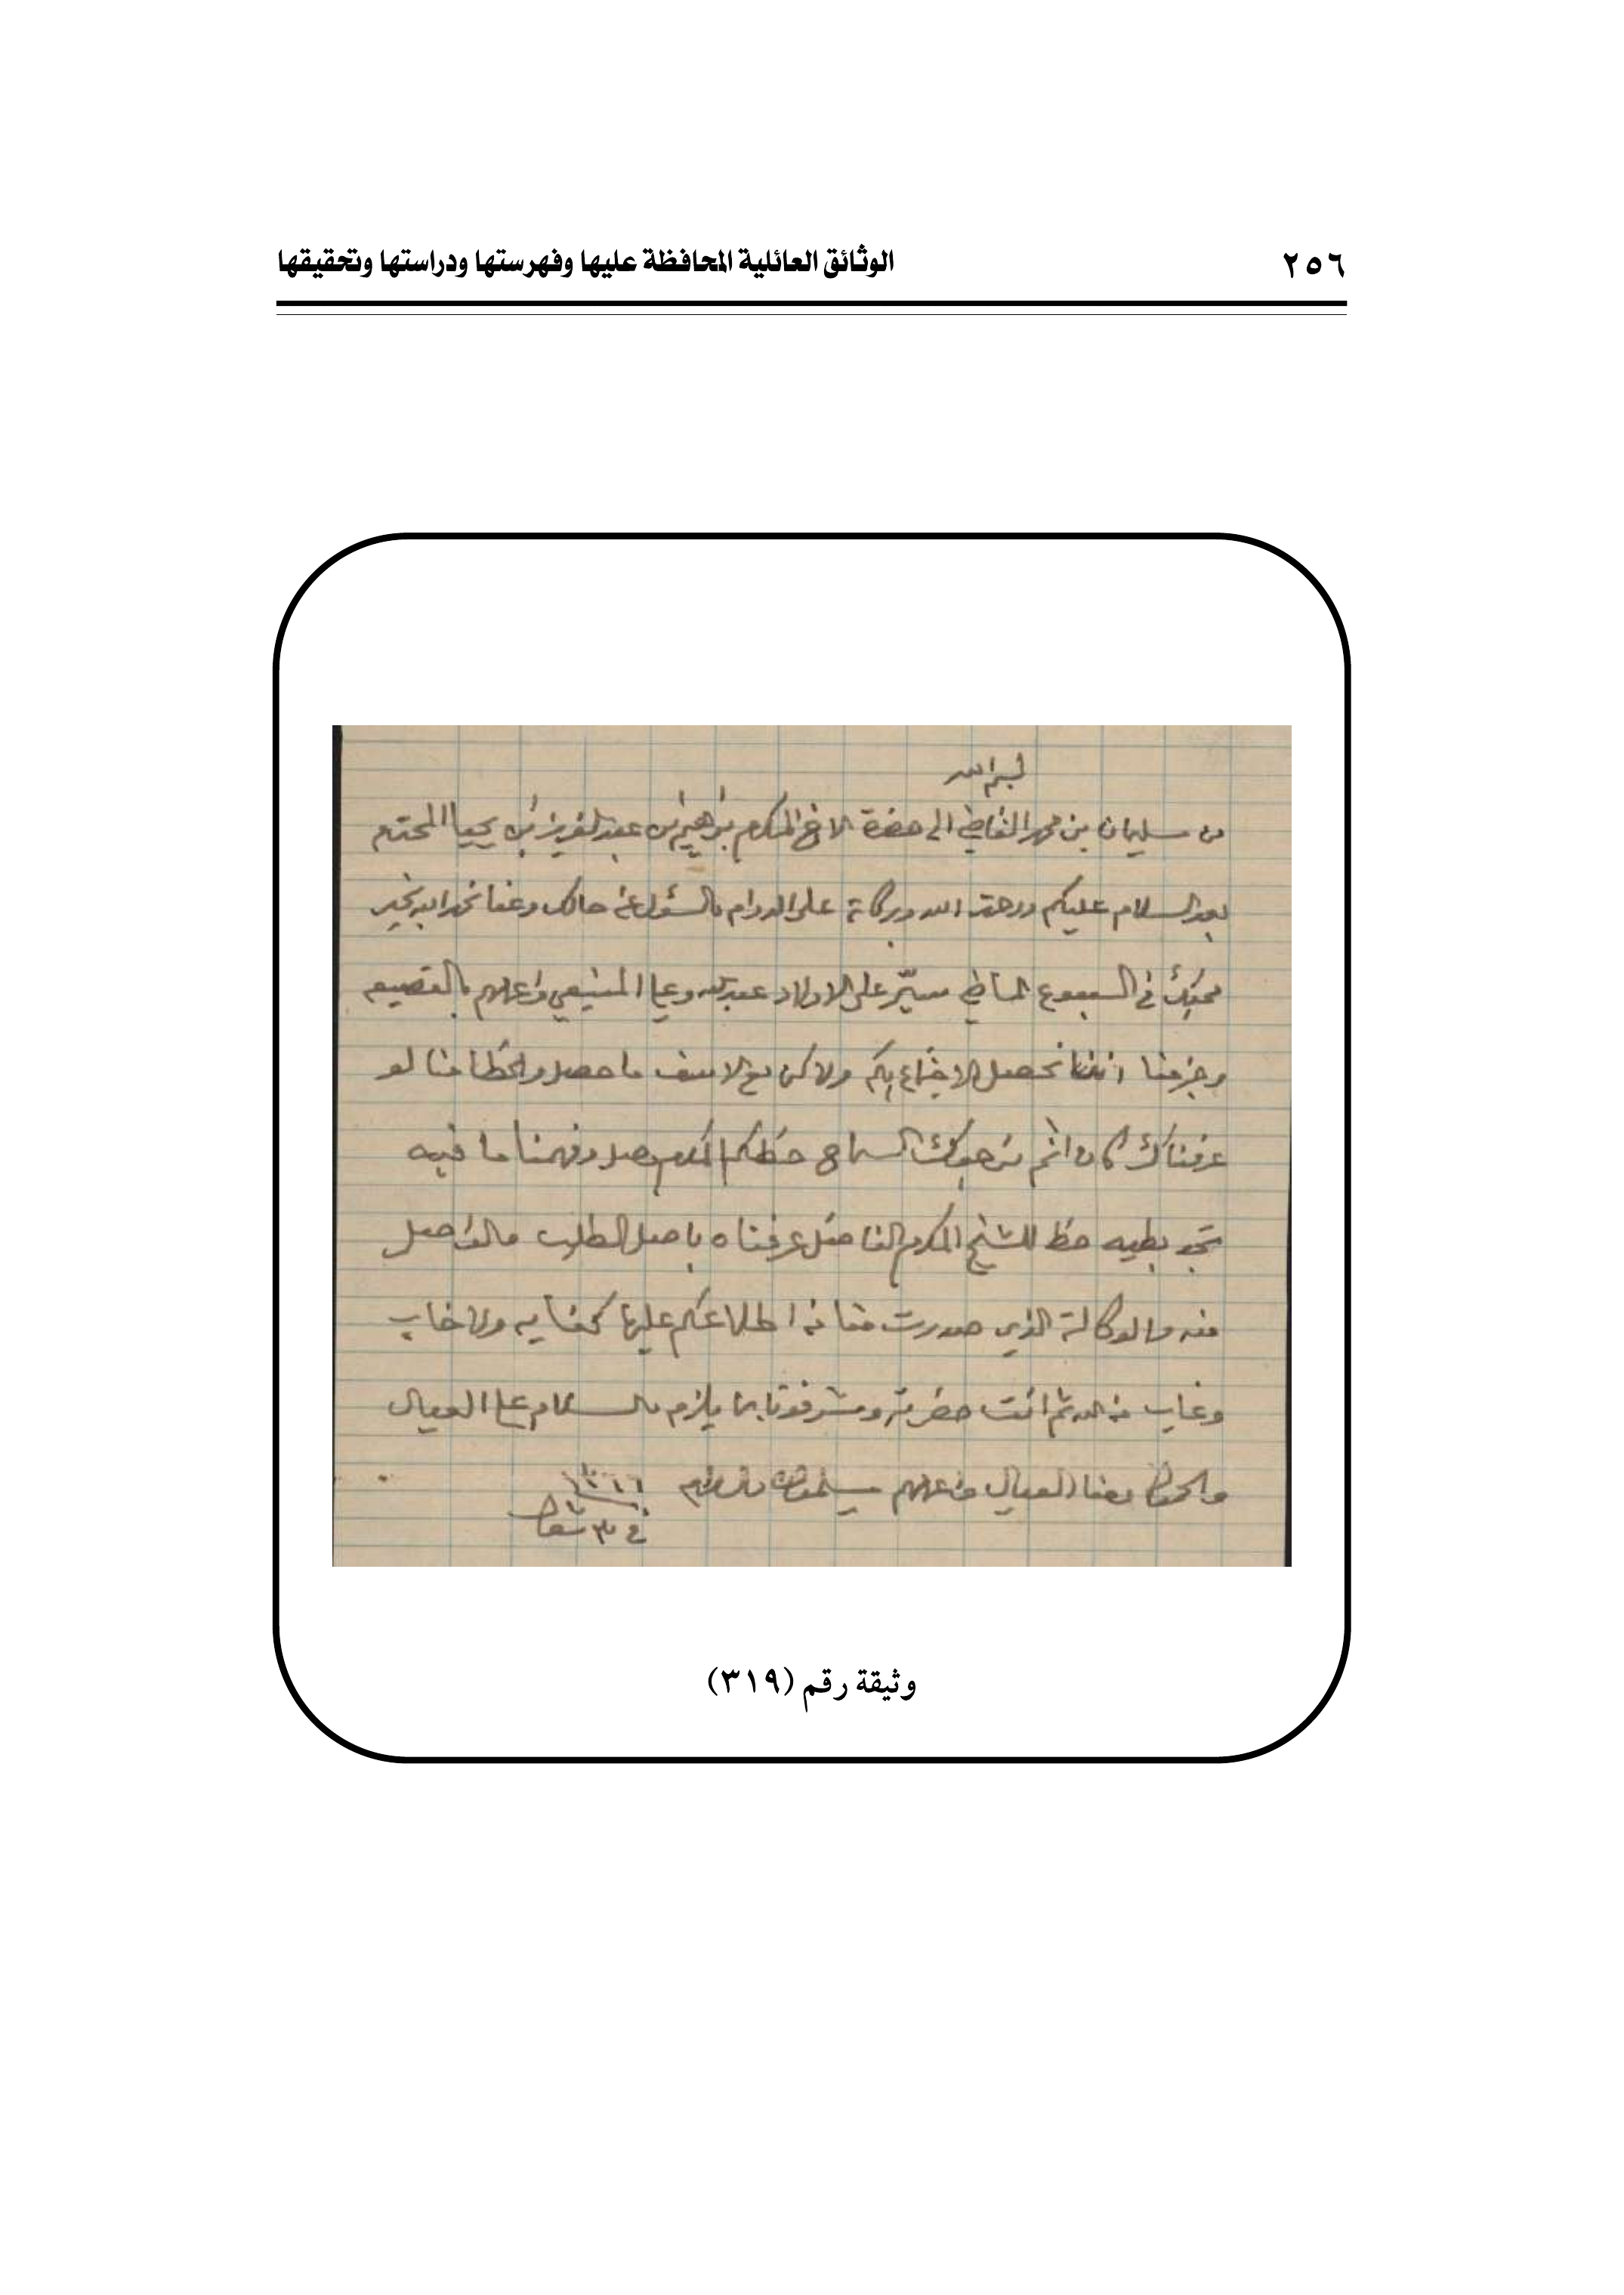 ٢٥٦
الوثائق العائلية المحافظة عليها وفهرستها ودراستها وتحقيقها
بسم الله
من سليمان بن محمد القاضي الى حضرة الاخ المكرم ابراهيم بن عبدالعزيز بن يحيا المحترم
بعد السلام عليكم ورحمة الله وبركاته على الدوام والسؤل عن حالك وعنا نحمد الله بخير
محبك في السبوع الماضي سيّر على الاولاد عبدالله وعيا واهلهم بالقصيعه
وجزمنا اننا نحصل الاجتماع بكم ولاكن مع الاسف ما حصل والخطا منا لو
عرفناك كان انتم السماح خطكم المكرم وصل وفهمنا ما فيه
تجد بطيه خط للشيخ المكرم الفاضل عرفناه باصل الطلب
منه والوكالة الذي صدرت منا اطلاعكم عليها كفايه ولا خاب
وغاب من الله ثم انت حضرته وشرفونا بما يلزم والسلام على العيال
العيال واهلهم يسلمون والسلام
١٣
في ٣ شعبان
وثيقة رقم (٣١٩)